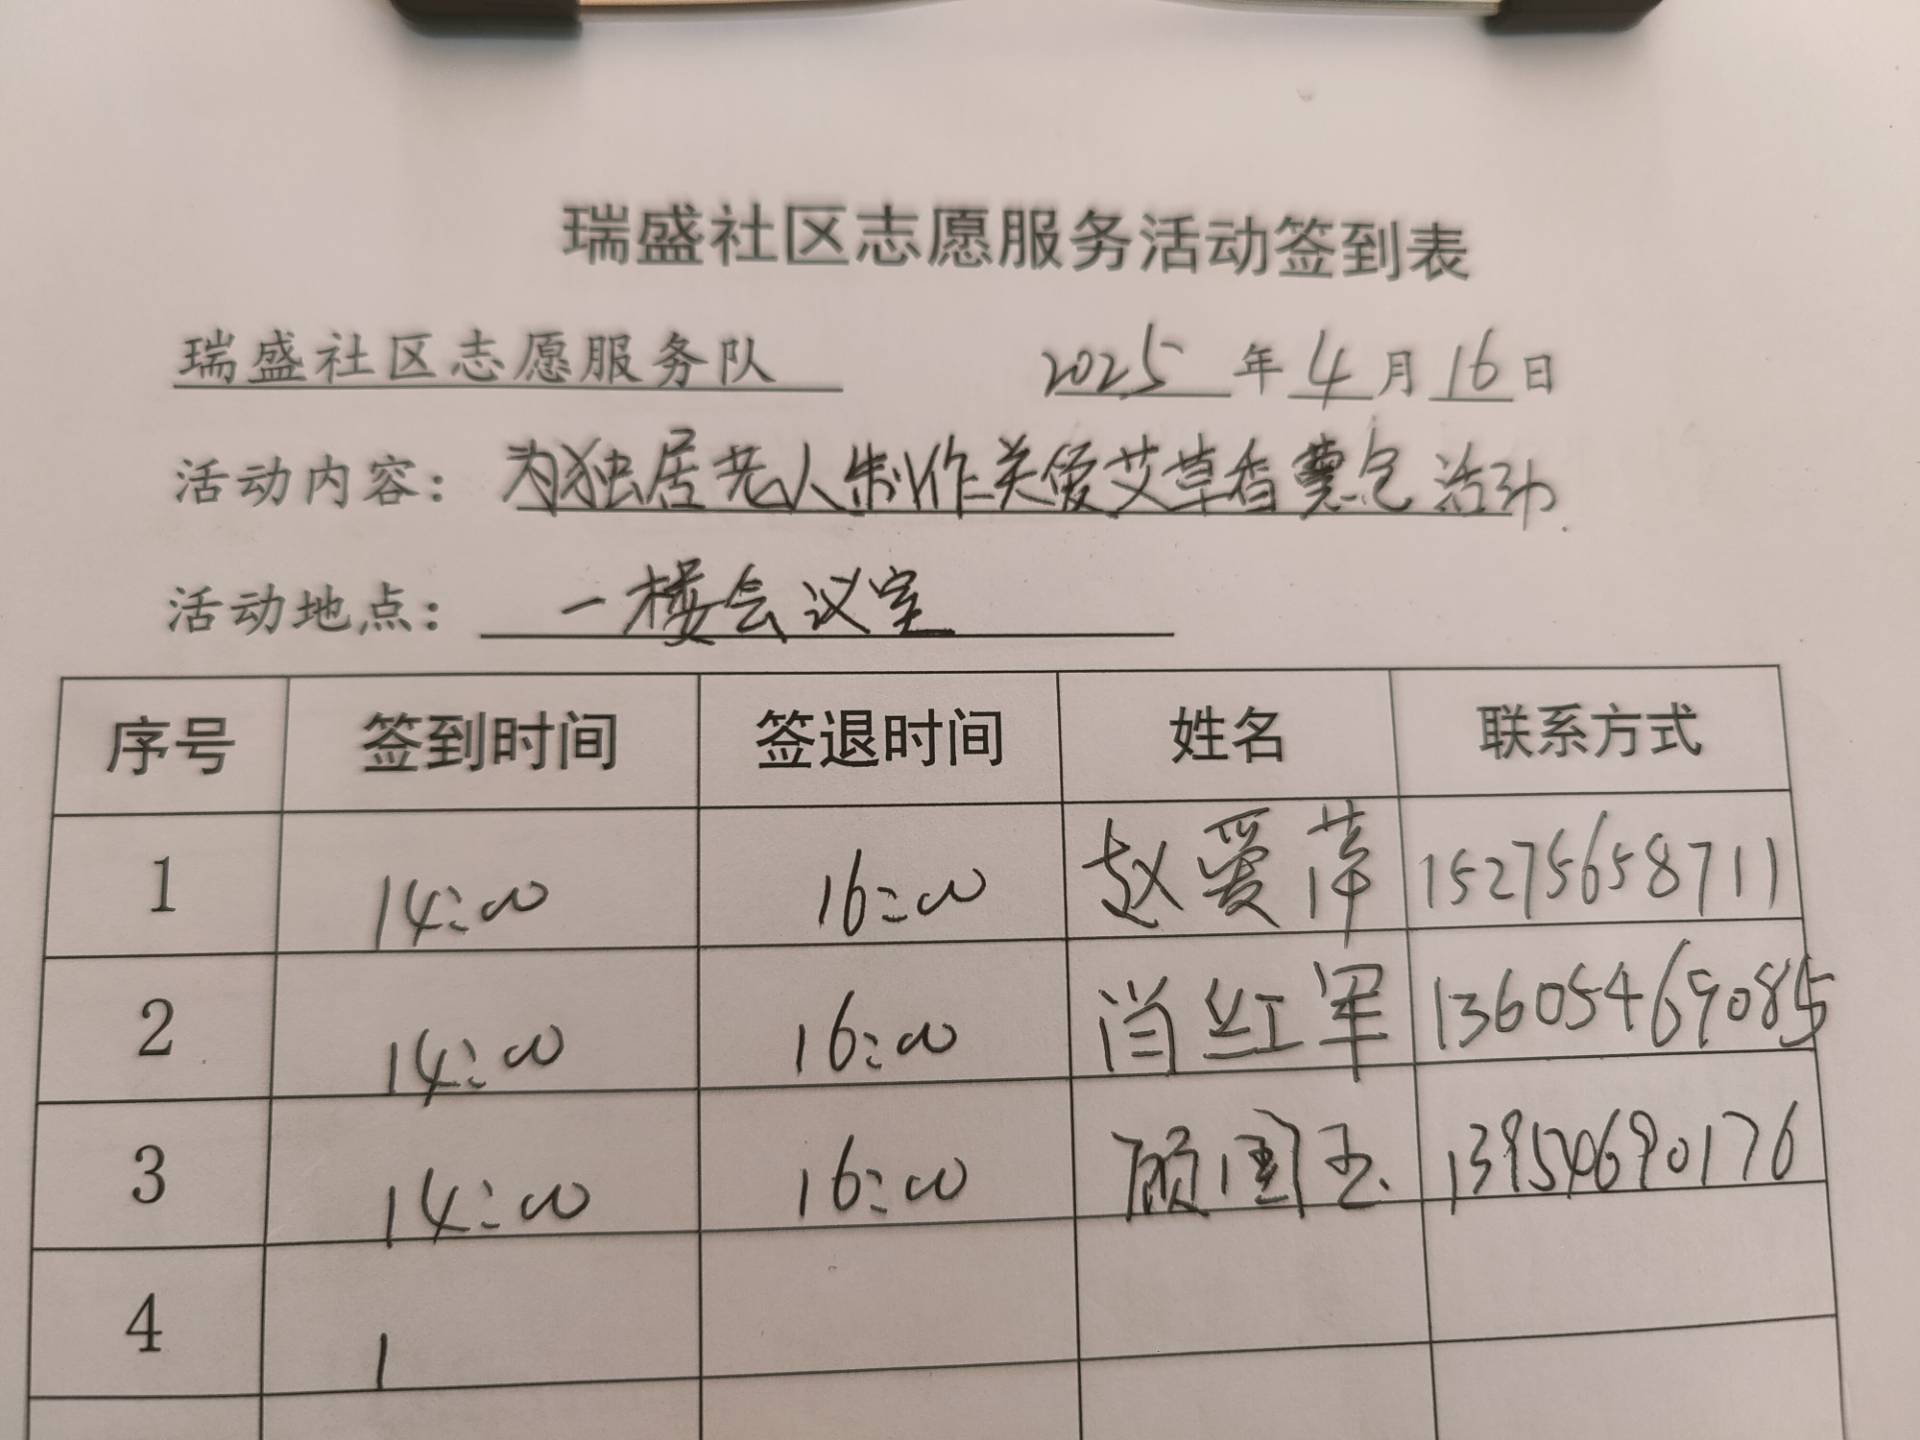 瑞盛社区志愿服务活动签到表
瑞盛社区志愿服务队 2025 年 4 月 16 日
活动内容： 为独居老人制作关爱艾草香囊包活动.
活动地点： 一楼会议室
序号 签到时间 签退时间 姓名 联系方式
1 14:00 16:00 赵爱萍 15275658711
2 14:00 16:00 肖红军 13605469085
3 14:00 16:00 顾国玉 13954690176
4 1